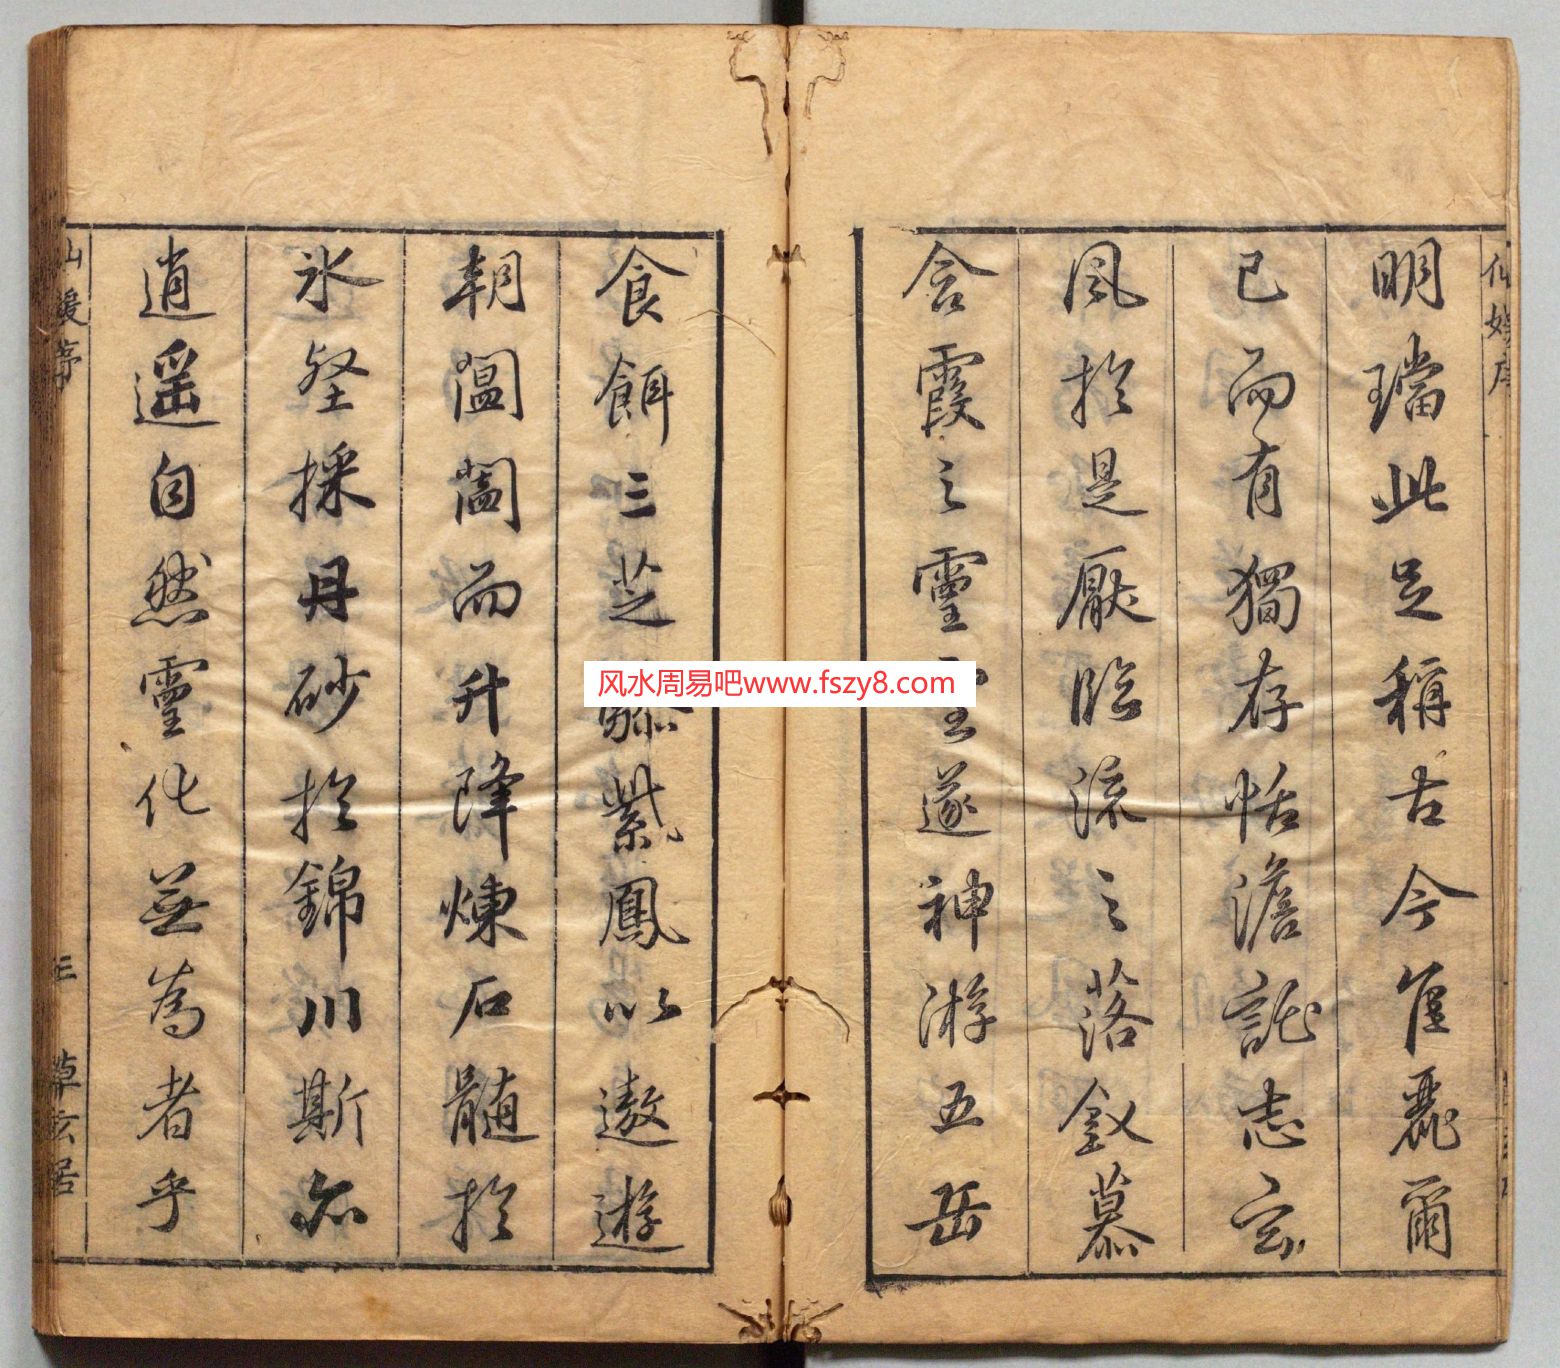 明璫此足稱古今隹麗爾
已而有獨存恬澹託志玄
風於是厭臨流之落釵慕
含霞之靈遂神游五岳
食餌三芝驂紫鳳以遨遊
朝閶闔而升降煉石髓於
氷壑採丹砂於錦川斯亦
逍遥自然靈化無為者乎
三
草玄居
风水周易吧www.fszy8.com